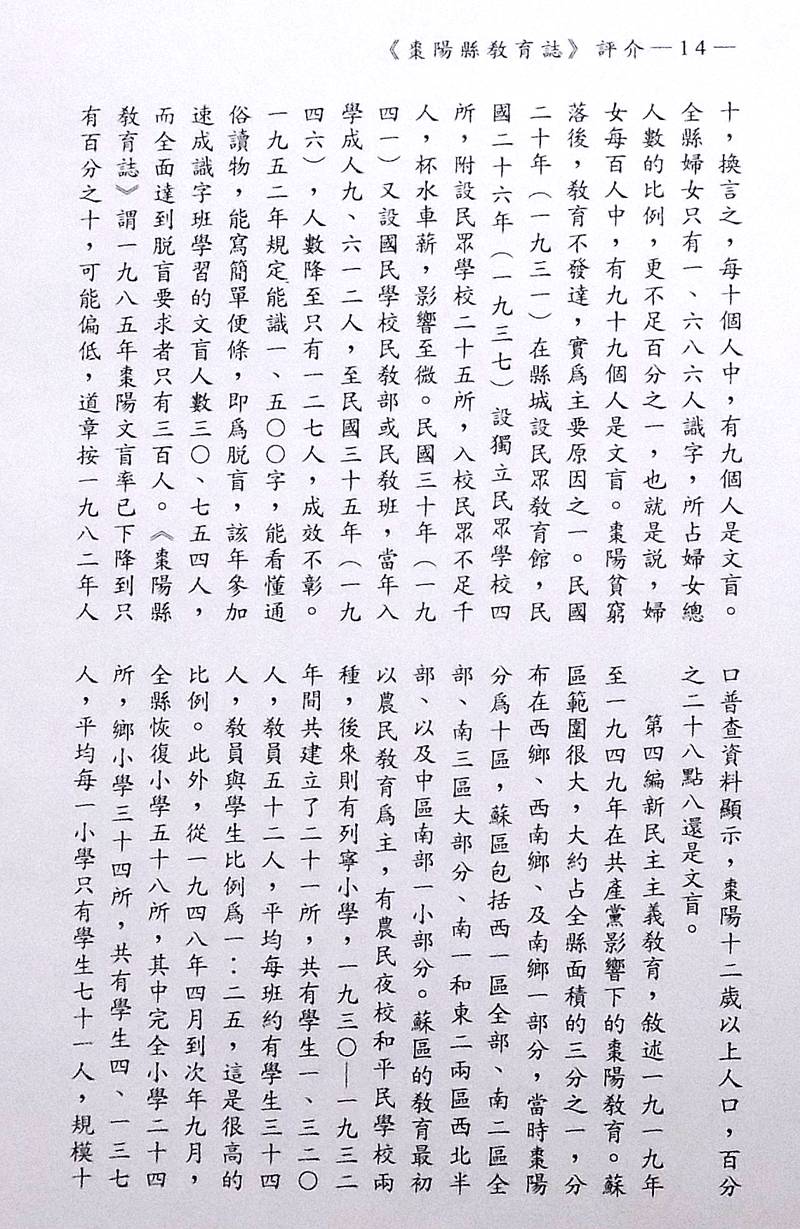 《棗陽縣教育誌》評介—14—
十，換言之，每十個人中，有九個人是文盲。
全縣婦女只有一、六八六人識字，所占婦女總
人數的比例，更不足百分之一，也就是説，婦
女每百人中，有九十九個人是文盲。棗陽貧窮
落後，教育不發達，實爲主要原因之一。民國
二十年（一九三一）在縣城設民眾教育館，民
國二十六年（一九三七）設獨立民眾學校四
所，附設民眾學校二十五所，入校民眾不足千
人，杯水車薪，影響至微。民國三十年（一九
四一）又設國民學校民教部或民教班，當年入
學成人九、六一二人，至民國三十五年（一九
四六），人數降至只有一二七人，成效不彰。
一九五二年規定能識一、五〇〇字，能看懂通
俗讀物，能寫簡單便條，即爲脱盲，該年參加
速成識字班學習的文盲人數三〇、七五四人，
而全面達到脱盲要求者只有三百人。《棗陽縣
教育誌》謂一九八五年棗陽文盲率已下降到只
有百分之十，可能偏低，道章按一九八二年人
口普查資料顯示，棗陽十二歲以上人口，百分
之二十八點八還是文盲。
第四編新民主主義教育，敘述一九一九年
至一九四九年在共產黨影響下的棗陽教育。蘇
區範圍很大，大約占全縣面積的三分之一，分
布在西鄉、西南鄉、及南鄉一部分，當時棗陽
分爲十區，蘇區包括西一區全部、南二區全
部、南三區大部分、南一和東二兩區西北半
部、以及中區南部一小部分。蘇區的教育最初
以農民教育爲主，有農民夜校和平民學校兩
種，後來則有列寧小學，一九三〇—一九三二
年間共建立了二十一所，共有學生一、三二〇
人，教員五十二人，平均每班約有學生三十四
人，教員與學生比例爲一：二五，這是很高的
比例。此外，從一九四八年四月到次年九月，
全縣恢復小學五十八所，其中完全小學二十四
所，鄉小學三十四所，共有學生四、一三七
人，平均每一小學只有學生七十一人，規模十